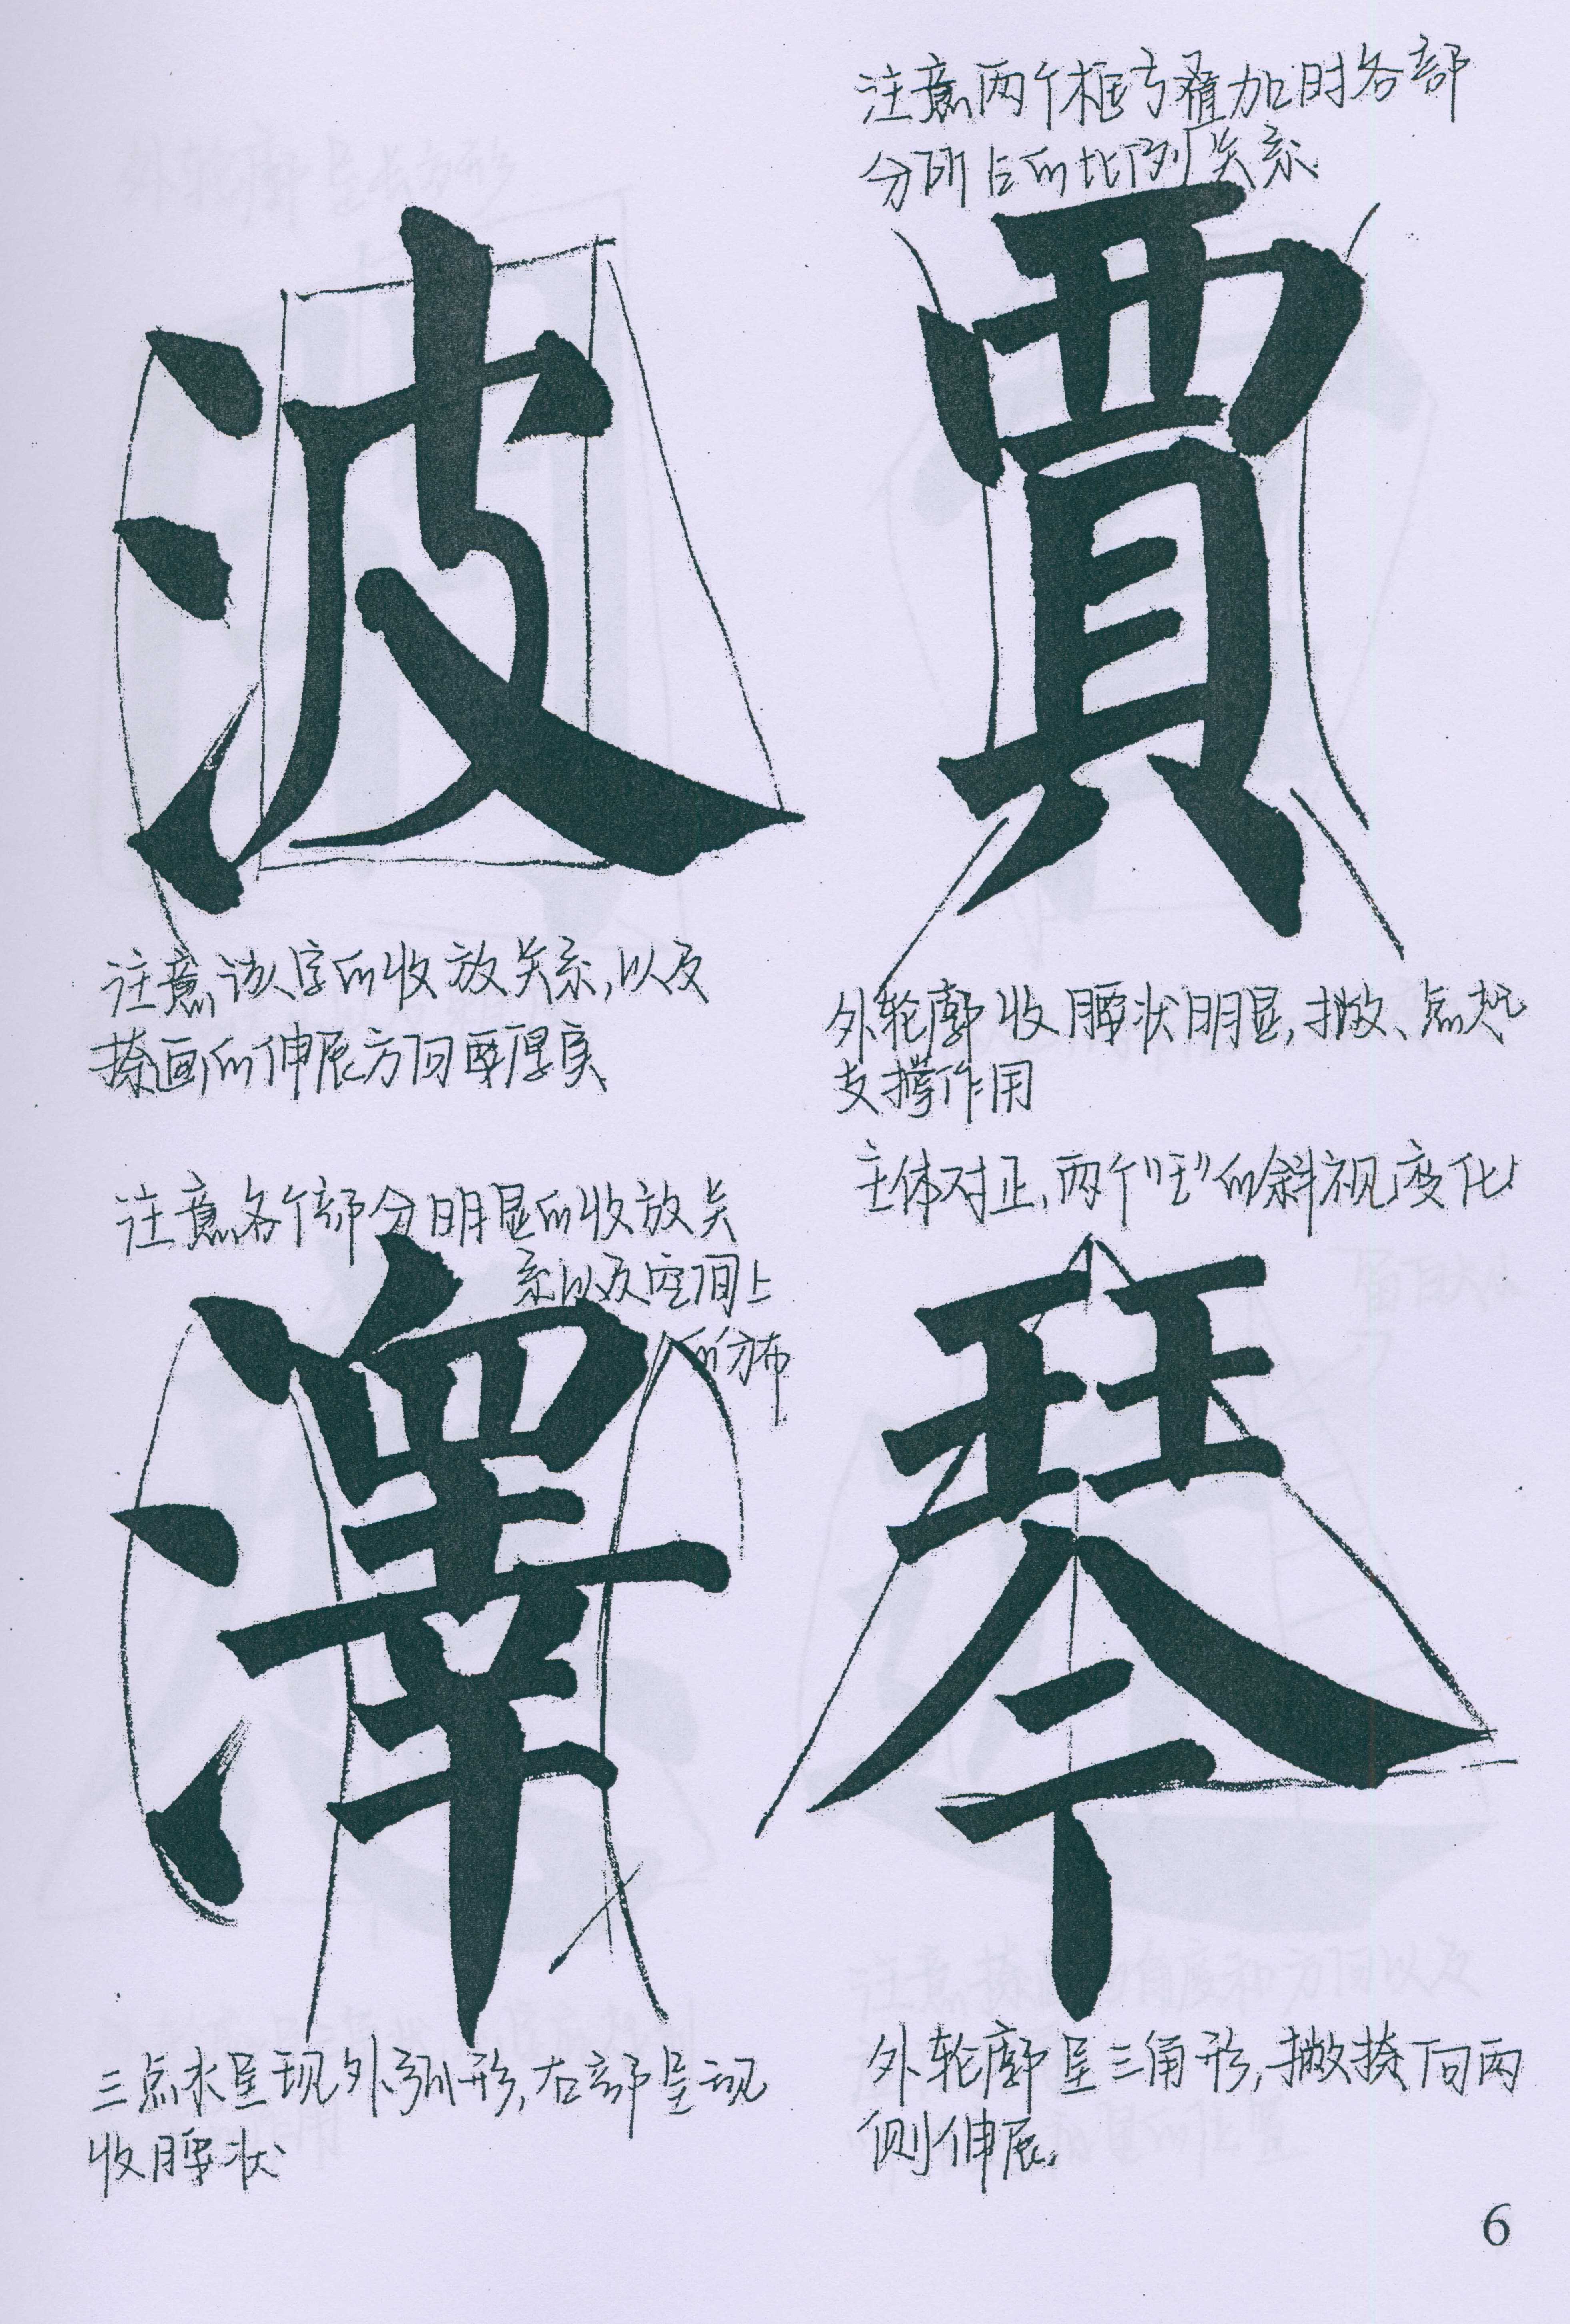 注意两个框当叠加时各部
分所占的比例关系
波
賈
注意该字的收放关系,以及
捺画的伸展方向要厚实
外轮廓收腰状明显,撇、点起
支撑作用
注意各个部分明显的收放关
系以及空间上
的分布
主体对正,两个"王"的斜视变化
澤
琴
三点水呈现外弧形,右部呈现
收腰状
外轮廓呈三角形,撇捺向两
侧伸展.
6